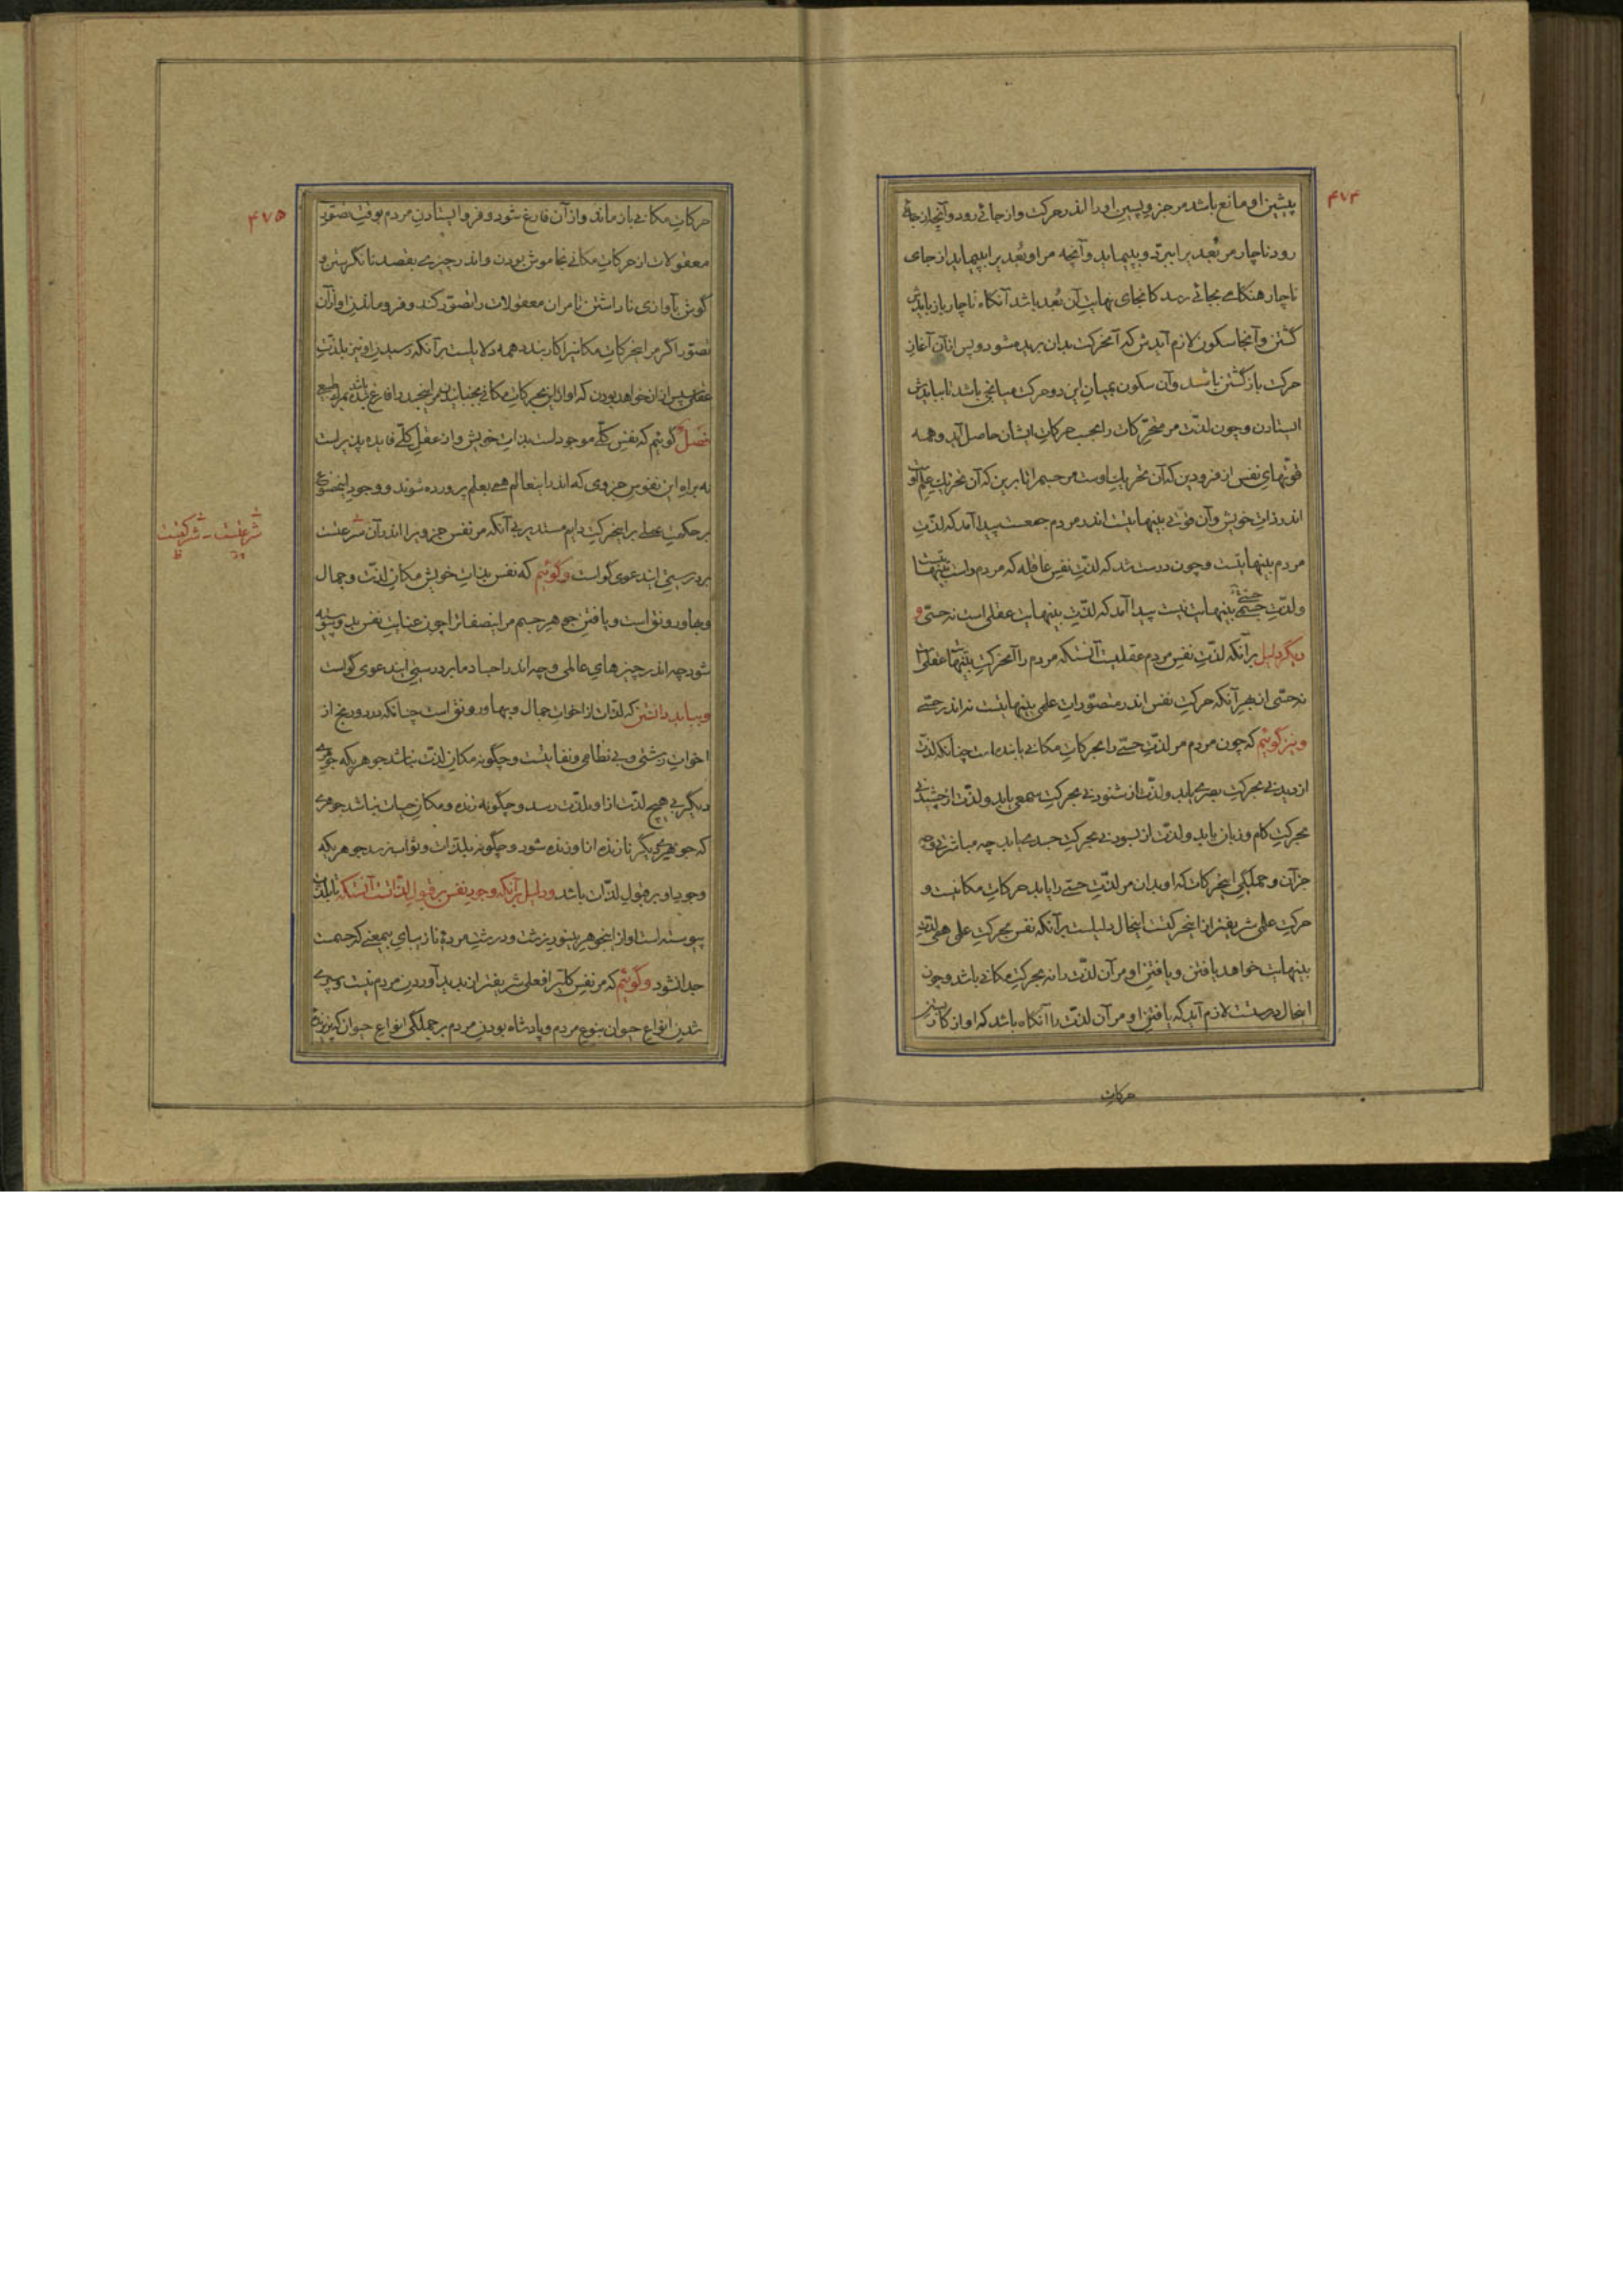 ۴۷۴
پیشین او مانع باشد مر جزو پسین او را اندر حرکت و از جائے رود و آنچه از جائے
رود ناچار مر بُعد یرا ببرّد و بپیماید و آنچه مر او بُعد یرا بپیماید از جای
ناچار هنگامے بجائے رسد کانجای نهایتِ آن بُعد باشد آنگاه ناچار باز بایدش
گشتن و آنجا سکون لازم آیدش که آنحرکت بدان بریده شود و پس از آن آغازِ
حرکت باز گشتن باشد و آن سکون بمیانِ این دو حرکت میانجی باشد تا بیایدش
ایستادن و چون لذّت مر متحرّکات را بحسب حرکاتِ ایشان حاصل آید و همه
قوّتهای نفس از فرودین که آن تحریکِ اوست مر جسم را تا برین که آن تحریکِ علمِ او
اندر ذاتِ خویش و آن قوّتے بینهایتست اندر مردم جمعست پیدا آمد که لذّتِ
مردم بینهایتست و چون درست شد که لذّتِ نفسِ عاقله که مردم راست بینهایتست
و لذّتِ حسّے بینهایت نیست پیدا آمد که لذّتِ بینهایت عقلی است نه حسّی و
دیگر دلیل بر آنکه لذّتِ نفسِ مردم عقلیست آنستکه مردم را آنحرکتِ بینهایت عقلی است
نه حسّی از بهرِ آنکه حرکتِ نفس اندر متصوّراتِ علمی بینهایتست نه اندر حسّے
و نیز گوئیم که چون مردم مر لذّتِ حسّے را بحرکاتِ مکانے یابنده است چنانکه لذّت
از دیدنے بحرکتِ بصر یابد و لذّت از شنودنے بحرکتِ سمعی یابد و لذّت از چشیدنے
بحرکتِ کام و زبان یابد و لذّت از بسودنے بحرکتِ جسد یابد چه مباشرتے و چه
جز آن و جملگیِ اینحرکات که او بدان مر لذّتِ حسّے را یابد حرکاتِ مکانیست و
حرکتِ علمی شریفتر از اینحرکتست اینحال دلیلست بر آنکه نفس بحرکتِ علمی همی لذّتِ
بینهایت خواهد یافتن و یافتنِ او مر آن لذّت را نه بحرکتِ مکانے باشد و چون
اینحال درستست لازم آید که یافتنِ او مر آن لذّت را آنگاه باشد که او از کار
حرکاتِ
۴۷۵
حرکاتِ مکانے باز ماند و از آن فارغ شود و فرو ایستادنِ مردم بوقتِ تصوّرِ
معقولات از حرکاتِ مکانے بخاموش بودن و اندر چیزے بقصد نانگریستن و
گوش بآوازی ناداشتن تا مر آن معقولات را تصوّر کند و فرو ماندنِ او از آن
تصوّر اگر مر اینحرکاتِ مکانیرا کار بندد همه دلایلست بر آنکه رسیدنِ او نیز بلذّتِ
عقلی پس از آن خواهد بودن که او از این حرکاتِ مکانے بجنبانیدنِ مر اینجسد را فارغ باشد
فصل گوئیم که نفسِ کلّے موجود است بذاتِ خویش و از عقلِ کلّے فایده پذیر است
نه براهِ این نفوسِ جزوی که اندر اینعالم همے بعلم پرورده شوند و وجودِ اینمصنوعِ
بر حکمت بر اینحرکتِ دایم مستدیر بے آنکه مر نفس جزویرا اندر آن شرعتست
بر درستیِ ایندعوی گواست و گوئیم که نفس بذاتِ خویش مکانِ لذّت و جمال
و بها و رونق است و یافتنِ جوهرِ جسم مر اینصفاترا چون عنایتِ نفس بدو پیوسته
شود چه اندر چیزهایِ عالمی و چه اندر اجسادِ ما بر درستیِ ایندعوی گواست
و بباید دانستن که لذّات از اخواتِ جمال و بها و رونق است چنانکه درد و رنج از
اخواتِ زشتی و بے نظامی و نفایتست و چگونه مکانِ لذّت نباشد جوهریکه جوهرے
دیگر بے هیچ لذّت از او بلذّت رسد و چگونه زنده و مکانِ حیات نباشد جوهرے
که جوهرے دیگر نازنده از او زنده شود و چگونه بلذّات و ثواب نرسد جوهریکه
وجودِ او بر قبولِ لذّات باشد و دلیل بر آنکه وجودِ نفس بر قبولِ لذّاتست آنستکه تا بلذّت
پیوسته است او از اینجوهرِ بینورِ زشت و درشتِ مردهٔ نازیبایِ بیمعنے که جسمست
جدا نشود و گوئیم که مر نفسِ کلّیرا فعلی شریفتر از پدید آوردنِ مردم نیست و سپرے
شدنِ انواعِ حیوان بنوعِ مردم و پادشاه بودنِ مردم بر جملگی انواعِ حیوان
شرعتست - شرکتست
ظ